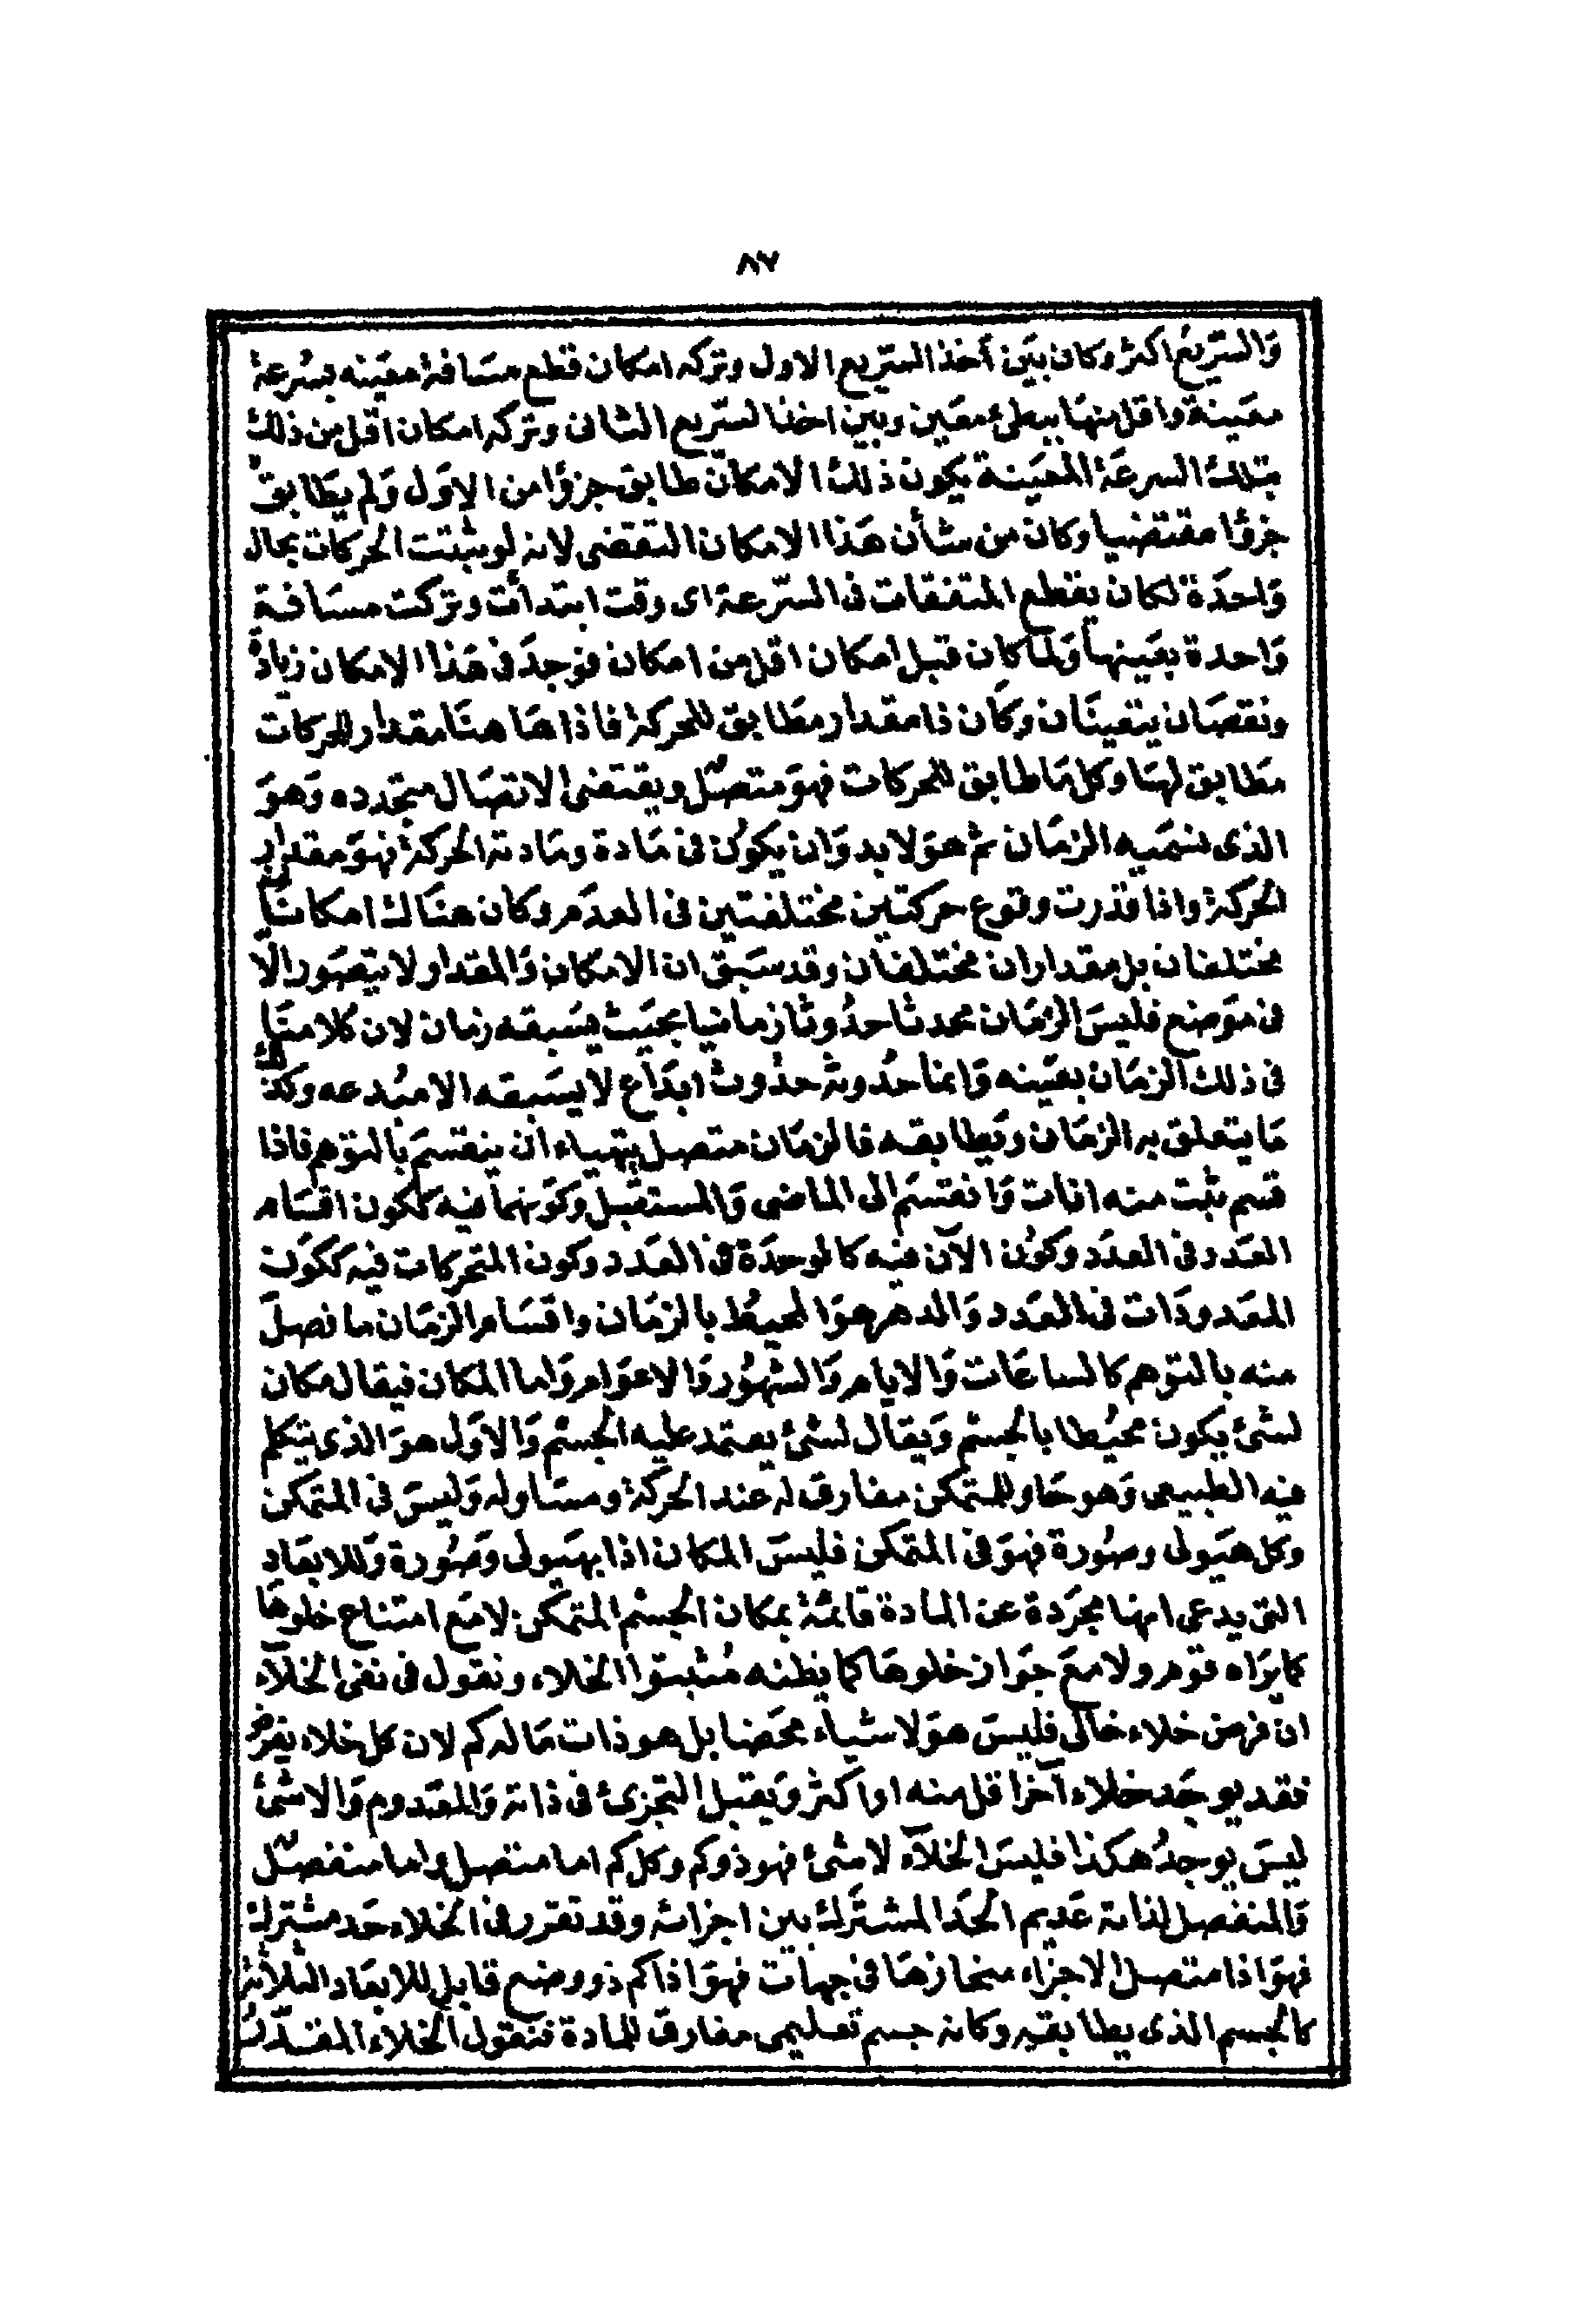 ٨٧
وَالسّريعُ اكثر وكان بيَن أخذ السّريع الاول وتركه امكان قطع مسَافة معَينه بسُرعة
معَينة واقل منهَا ببطئ معَين وبين اخذ السّريع الثانى وتركه امكان اقل من ذلك
بتلك السرعَة المعَينة يكون ذلك الامكان طابق جزؤا من الاوَل وَلم يطَابق
جزؤا مقتضيا وكان من شأن هَذا الامكان التقضى لانه لو ثبتت الحركات بحال
وَاحدَة لكان يقطع المتفقات فى السّرعة اى وقت ابتدأت وتركت مسَافة
وَاحدة بعَينها وَلما كان قبل امكان اقل من امكان فوجدَ فى هَذا الامكان زيادة
ونقصَان يتعينَان وكَان ذا مقدار مطَابق للحركة فاذا هَا هنَا مقدار للحركات
مطَابق لهَا وكل مَا طابق للحركات فهوَ متصّل ويقتضى الاتصَال متجدده وَهوَ
الذى نسمَيه الزمَان ثم هوَ لا بد وَان يكوُن فى مَادة ومَادته الحركة فهوَ مقدار
الحركة واذا قدرت وقوع حركتين مختلفتين فى العدَم وكان هنَاك امكانَان
مختلفان بل مقداران مختلفان وقد سَبق ان الامكان وَالمقدار لا يتصَور الّا
فى موَضع فليسَ الزمَان محدثا حدُوثا زمانيا بحيَث يسَبقه زمان لان كلامنَا
فى ذلك الزمَان بعَينه وَانما حدُوثه حدُوث ابدَاع لا يسَبقه الا مبُدعه وكذلك
مَا يتعلق به الزمَان ويَطابقه فالزمَان متصل يتهياء ان ينقسَم بالتوهم فاذا
قسم ثبت منه انات وَانقسَم الى الماضى وَالمستقبَل وكوَنهما فيه ككون اقسَام
العَدد فى العدَد وكوُن الآن فيه كالوحدَة فى العَدد وكون المتحركات فيه ككوَن
المعَدودَات فى العَدد وَالدهر هوَ المحيُط بالزمَان واقسَام الزمَان ما فصلَ
منه بالتوهم كالساعَات وَالايام وَالشهُور وَالاعوَام وَاما المكان فيقال مكان
لشئ يكون محيُطا بالجسْم وَيقال لشئ يعتمد عليه الجسْم وَالاوَل هوَ الذى يتكلم
فيه الطبيعى وَهو حَاو للمتمكن مفارق له عند الحركة ومسَاو له وَليسَ فى المتمكن
وكل هيَولى وصُورة فهوَ فى المتمكن فليسَ المكان اذا بهيَولى وَصُورة وَلا الابعَاد
التى يدعى انها مجرَدة عن المادة قائمَة بمكان الجسْم المتمكن لا مَع امتناع خلوهَا
كما يرَاه قوم ولا معَ جوَاز خلوهَا كما يظنه مُثبتوا الخلاء ونقول فى نفى الخلآء
ان فرض خلاء خالى فليسَ هوَ لا شياء محَضا بل هو ذات مَا له كم لان كل خلاء يفرض
فقد يوجَد خلاء آخر اقل منه او اكثر وَيقبل التجزئ فى ذاته وَالمعَدوم وَالاشئ
ليسَ يوجدُ هكذا فليسَ الخلآء لا شئ فهو ذو كم وكل كم اما متصل واما منفصّل
وَالمنفصل لذاته عَديم الحَد المشتَرك بين اجزائه وقد تقرر فى الخلاء حَد مشترك
فهوَ اذا متصل الاجزاء منحازهَا فى جهات فهوَ اذا كم ذو وضع قابل للابعَاد الثلاثة
كالجسم الذى يطابقه وكانه جسم تعليمى مفارق للمادة فنقول الخلاء المقدّر